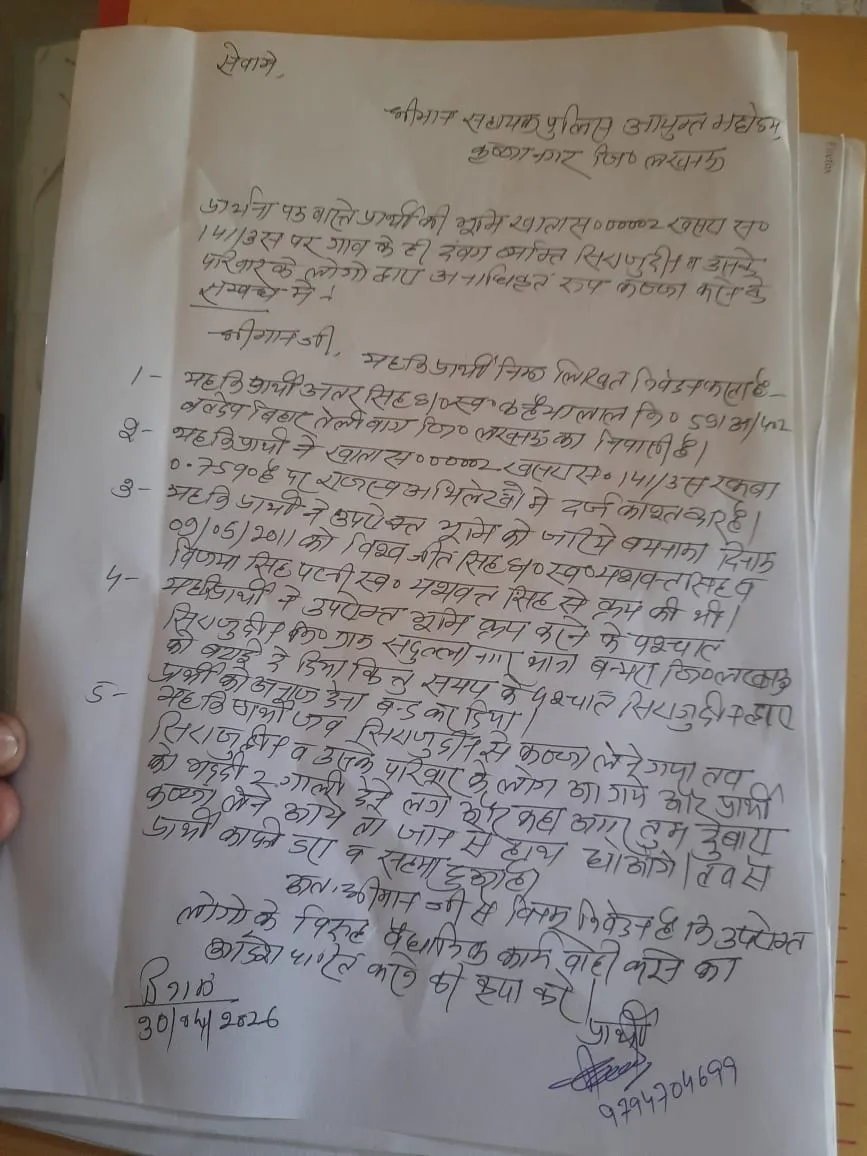 सेवामे,
श्रीमान सहायक पुलिस आयुक्त महोदय,
कृष्णा नगर जि० लखनऊ
प्रार्थना पत्र वास्ते प्रार्थी की भूमि खाता स० 00002 खसरा स०
141/3स पर गाव के ही दबंग व्यक्ति सिराजुद्दीन व उसके
परिवार के लोगो द्वारा अनाधिकृत रूप कब्जा करने के
सम्बन्ध मे :
श्रीमान जी,
यह कि प्रार्थी निम्न लिखित निवेदन करता है -
1- यह कि प्रार्थी अतर सिंह पु० स्व० कन्हैया लाल नि० 591अ/402
बलदेव विहार तेलीबाग जि० लखनऊ का निवासी है।
2- यह कि प्रार्थी ने खाता स० 00002 खसरा स० 141/3स रकबा
0.7590 हे पर राजस्व अभिलेखो मे दर्ज काश्तकार है।
3- यह कि प्रार्थी ने उपरोक्त भूमि को जरिये बयनामा दिनांक
09/05/2011 को विश्व जीत सिंह पु० स्व० यशवन्त सिंह व
सिंह पत्नी स्व० यशवन्त सिंह से क्रय की थी।
4- यह कि प्रार्थी ने उपरोक्त भूमि क्रय करने के पश्चात
सिराजुद्दीन नि० ग्राम सदुल्ला नगर थाना बन्थरा जि० लखनऊ
को बटाई दे दिया किन्तु समय के पश्चात सिराजुद्दीन द्वारा
प्रार्थी को अनाज देना बन्द कर दिया।
5- यह कि प्रार्थी जब सिराजुद्दीन से कब्जा लेने गया तब
सिराजुद्दीन व उसके परिवार के लोग आ गये और प्रार्थी
को भद्दी 2 गाली देने लगे और कहा अगर तुम दुबारा
कब्जा लेने आये तो जान से हाथ धो बैठोगे। तब से
प्रार्थी काफी डरा व सहमा हुआ है।
अतः श्रीमान जी से विनम्र निवेदन है कि उपरोक्त
लोगो के विरुद्ध वैधानिक कार्यवाही करने का
आदेश पारित करने की कृपा करे।
दिनांक
30/04/2026
प्रार्थी
9794704699